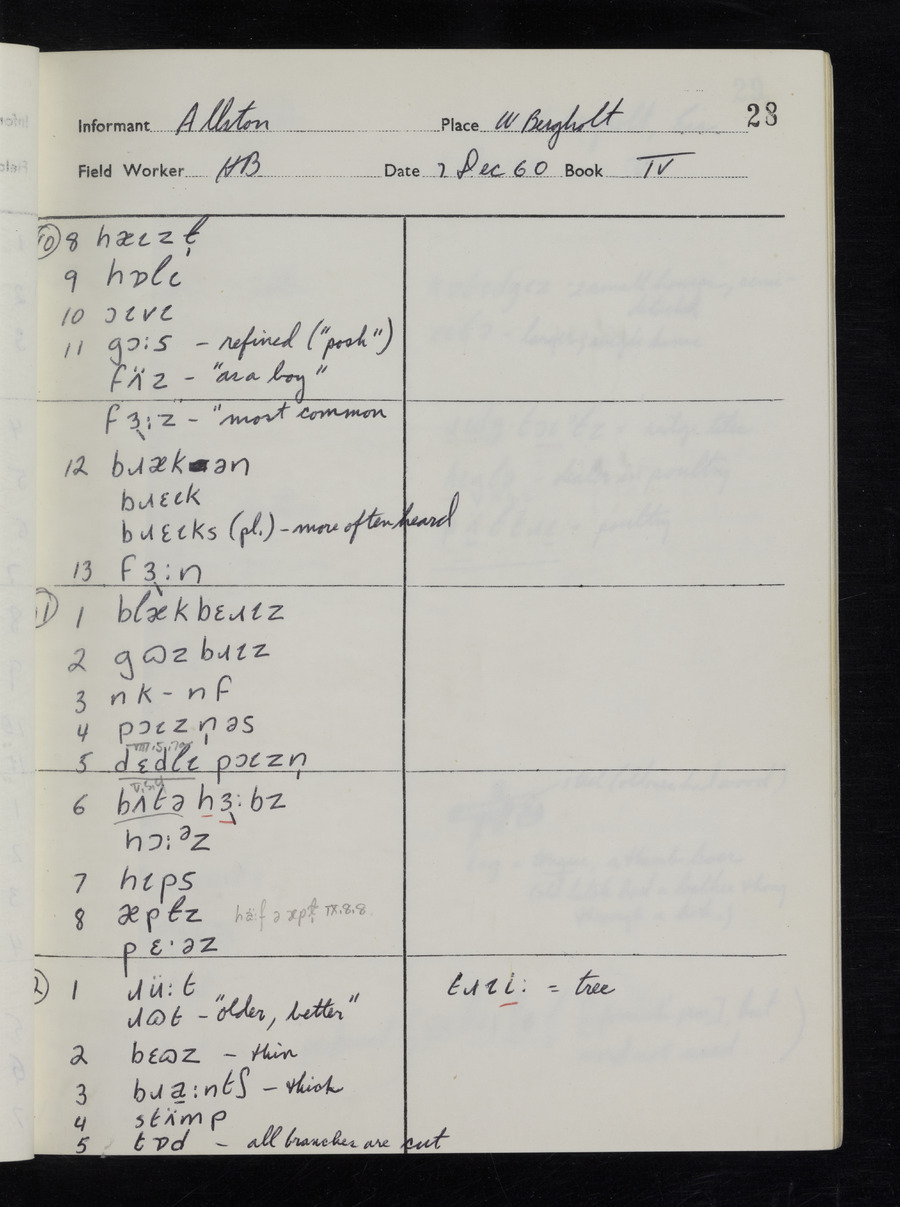 23
Informant Allston Place W Bergholt
Field Worker HB Date 7 Dec 60 Book IV
⑩ 8 hæɪzɫ̩
9 hɒlɪ
10 ɔɪvɪ
11 gɔ:s – refined ("posh")
fʌ̈z – "as a boy"
fɜ̣:z – "most common
12 bɹækən
bɹɛɪk
bɹɛɪks (pl.) – more often heard
13 fɜ̣:n
⑪ 1 blækbɛɹɪz
2 gɷzbɹɪz
3 nk – nf
4 pɔɪzn̩əs
VIII.5.7
5 dɛdlɪ pɔɪzn̩
V.5.4
6 bʌtə hɜ̣:bz
hɔ:ᵊz
7 hɪps
8 æpɫz hä:f ə æpɫ̩ IX.8.8.
pɛ·əz
⑫ 1 ɹü:t
ɹɷt – "older, better"
tɹɪi: = tree
2 bɛɷz – thin
3 bɹa̱:ntʃ – thick
4 stʌ̈mp
5 tɒd – all branches are cut